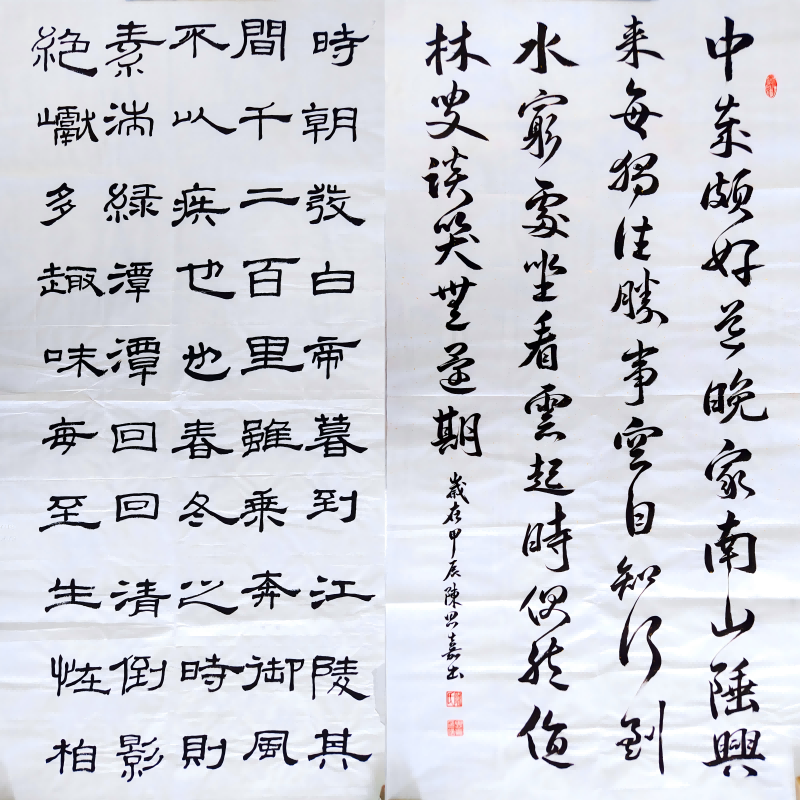 中歲頗好道晚家南山陲興
来每獨往勝事空自知行到
水窮處坐看雲起時偶然值
林叟談笑無還期
歲在甲辰陳嘉書
時朝發白帝暮到江陵其
間千二百里雖乘奔御風
不以疾也也春冬之時則
素湍緑潭潭回回清倒影
絶巘多趣味每至生怪柏